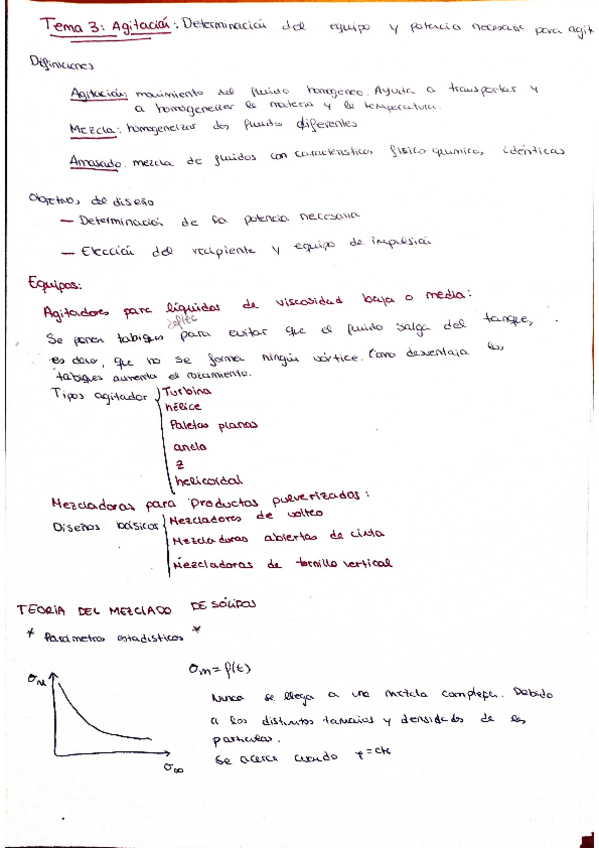 Tema 3: Agitación: Determinación del equipo y potencia necesaria para agit
Definiciones
Agitación: movimiento del fluido homogeneo. Ayuda a transportar y
a homogeneizar la materia y la temperatura.
Mezcla: homogeneizar dos fluidos diferentes
Amasado: mezcla de fluidos con características físico químicas idénticas
Objetivos de diseño
— Determinación de la potencia necesaria
— Elección del recipiente y equipo de impulsión
Equipos:
Agitadores para líquidos de viscosidad baja o media:
Se ponen tabiques para evitar que el fluido salga del tanque,
es decir, que no se forma ningún vórtice. Como desventaja los
tabiques aumenta el rozamiento.
Tipos agitador
Turbina
hélice
Paletas planas
ancla
Z
helicoidal
Mezcladoras para productos pulverizados:
Diseños básicos
Mezcladores de volteo
Mezcladoras abiertas de cinta
Mezcladoras de tornillo vertical
TEORIA DEL MEZCLADO DE SÓLIDOS
* Parámetros estadísticos *
σm = f(t)
Nunca se llega a una mezcla completa. Debido
a los distintos tamaños y densidades de las
partículas.
Se acerca cuando = cte
σm
σ∞